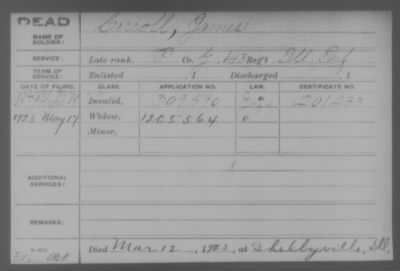 DEAD
Carroll, James
NAME OF SOLDIER:
SERVICE: Late rank, P Co. G, 143 Reg't Ill. Inf.
TERM OF SERVICE: Enlisted , 1 Discharged , 1
DATE OF FILING. CLASS. APPLICATION NO. LAW. CERTIFICATE NO.
Invalid,
1923 May 17 Widow, 1205564 0
Minor,
ADDITIONAL SERVICES:
REMARKS:
Died Mar 12, 1923, at Shelbyville, Ill.